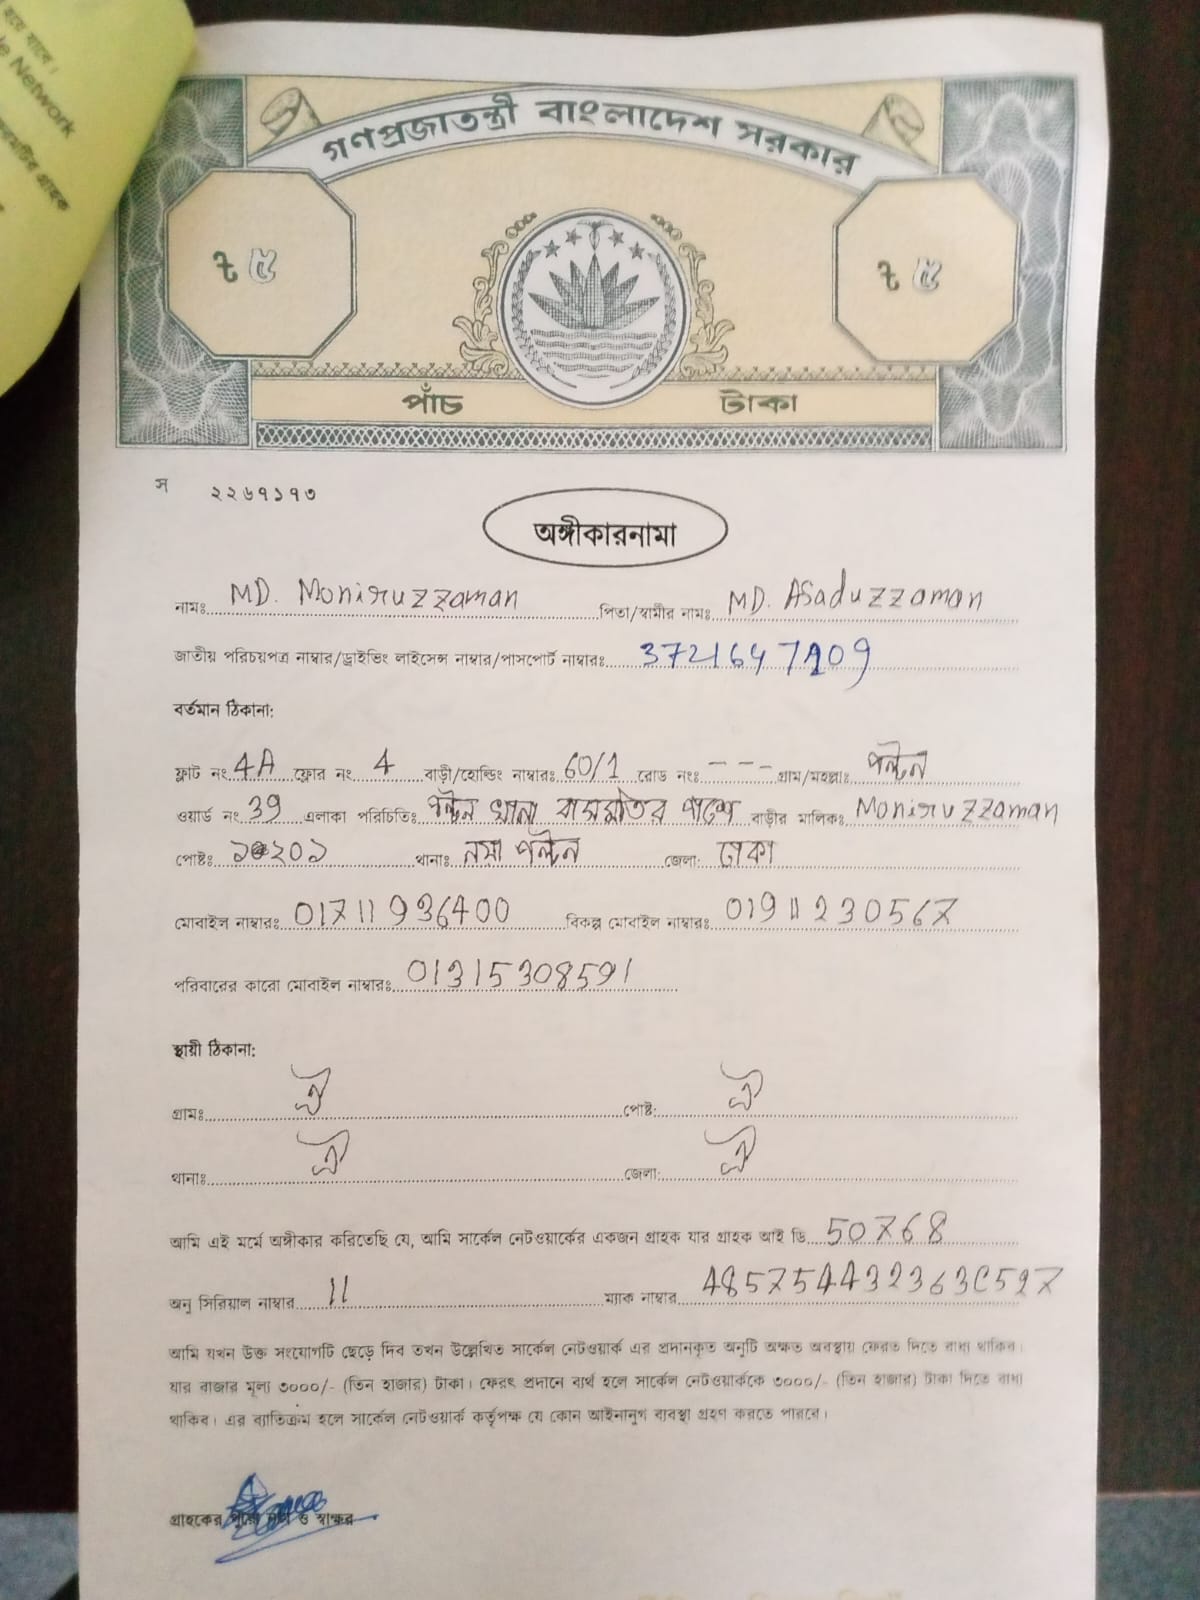 হয়ে যাবে।
le Network
গ্রাহক
গণপ্রজাতন্ত্রী বাংলাদেশ সরকার
৳ ৫ ৳ ৫
পাঁচ টাকা
স ২২৬৭১৭৩
অঙ্গীকারনামা
নামঃ MD. Moniruzzaman পিতা/স্বামীর নামঃ MD. Asaduzzaman
জাতীয় পরিচয়পত্র নাম্বার/ড্রাইভিং লাইসেন্স নাম্বার/পাসপোর্ট নাম্বারঃ
বর্তমান ঠিকানা:
ফ্লাট নং 4A ফ্লোর নং 4 বাড়ী/হোল্ডিং নাম্বারঃ 60/1 রোড নংঃ --- গ্রাম/মহল্লাঃ পল্টন
ওয়ার্ড নং 39 এলাকা পরিচিতিঃ পল্টন থানা বাসমতির পাশে বাড়ীর মালিকঃ Moniruzzaman
পোষ্টঃ থানাঃ নয়া পল্টন জেলা: ঢাকা
মোবাইল নাম্বারঃ 01711936400 বিকল্প মোবাইল নাম্বারঃ 01911230567
পরিবারের কারো মোবাইল নাম্বারঃ 01315308591
স্থায়ী ঠিকানা:
গ্রামঃ ঐ পোষ্ট: ঐ
থানাঃ ঐ জেলা: ঐ
আমি এই মর্মে অঙ্গীকার করিতেছি যে, আমি সার্কেল নেটওয়ার্কের একজন গ্রাহক যার গ্রাহক আই ডি 50768
অনু সিরিয়াল নাম্বার 11 ম্যাক নাম্বার 485754432363C527
আমি যখন উক্ত সংযোগটি ছেড়ে দিব তখন উল্লেখিত সার্কেল নেটওয়ার্ক এর প্রদানকৃত অনুটি অক্ষত অবস্থায় ফেরত দিতে বাধ্য থাকিব।
যার বাজার মূল্য ৩০০০/- (তিন হাজার) টাকা। ফেরৎ প্রদানে ব্যর্থ হলে সার্কেল নেটওয়ার্ককে ৩০০০/- (তিন হাজার) টাকা দিতে বাধ্য
থাকিব। এর ব্যাতিক্রম হলে সার্কেল নেটওয়ার্ক কর্তৃপক্ষ যে কোন আইনানুগ ব্যবস্থা গ্রহণ করতে পারবে।
গ্রাহকের পুরো নাম ও স্বাক্ষর